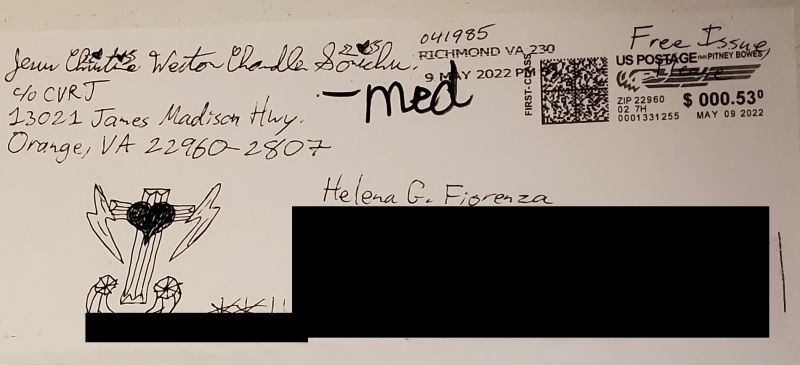 Jesus Christine Weston Chandler Sonichu.
c/o CVRJ
13021 James Madison Hwy.
Orange, VA 22960-2807
-med
041985
RICHMOND VA 230
9 MAY 2022 PM
FIRST-CLASS
Free Issue,
Please
US POSTAGE PITNEY BOWES
ZIP 22960
02 7H
0001331255
$ 000.53⁰
MAY 09 2022
Helena G. Fiorenza